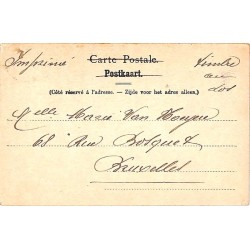 Imprimé
Carte Postale.
Postkaart.
(Côté réservé à l'adresse. – Zijde voor het adres alleen.)
timbre
au
dos
Melle Marie Van
68 Rue Bosquet
Bruxelles